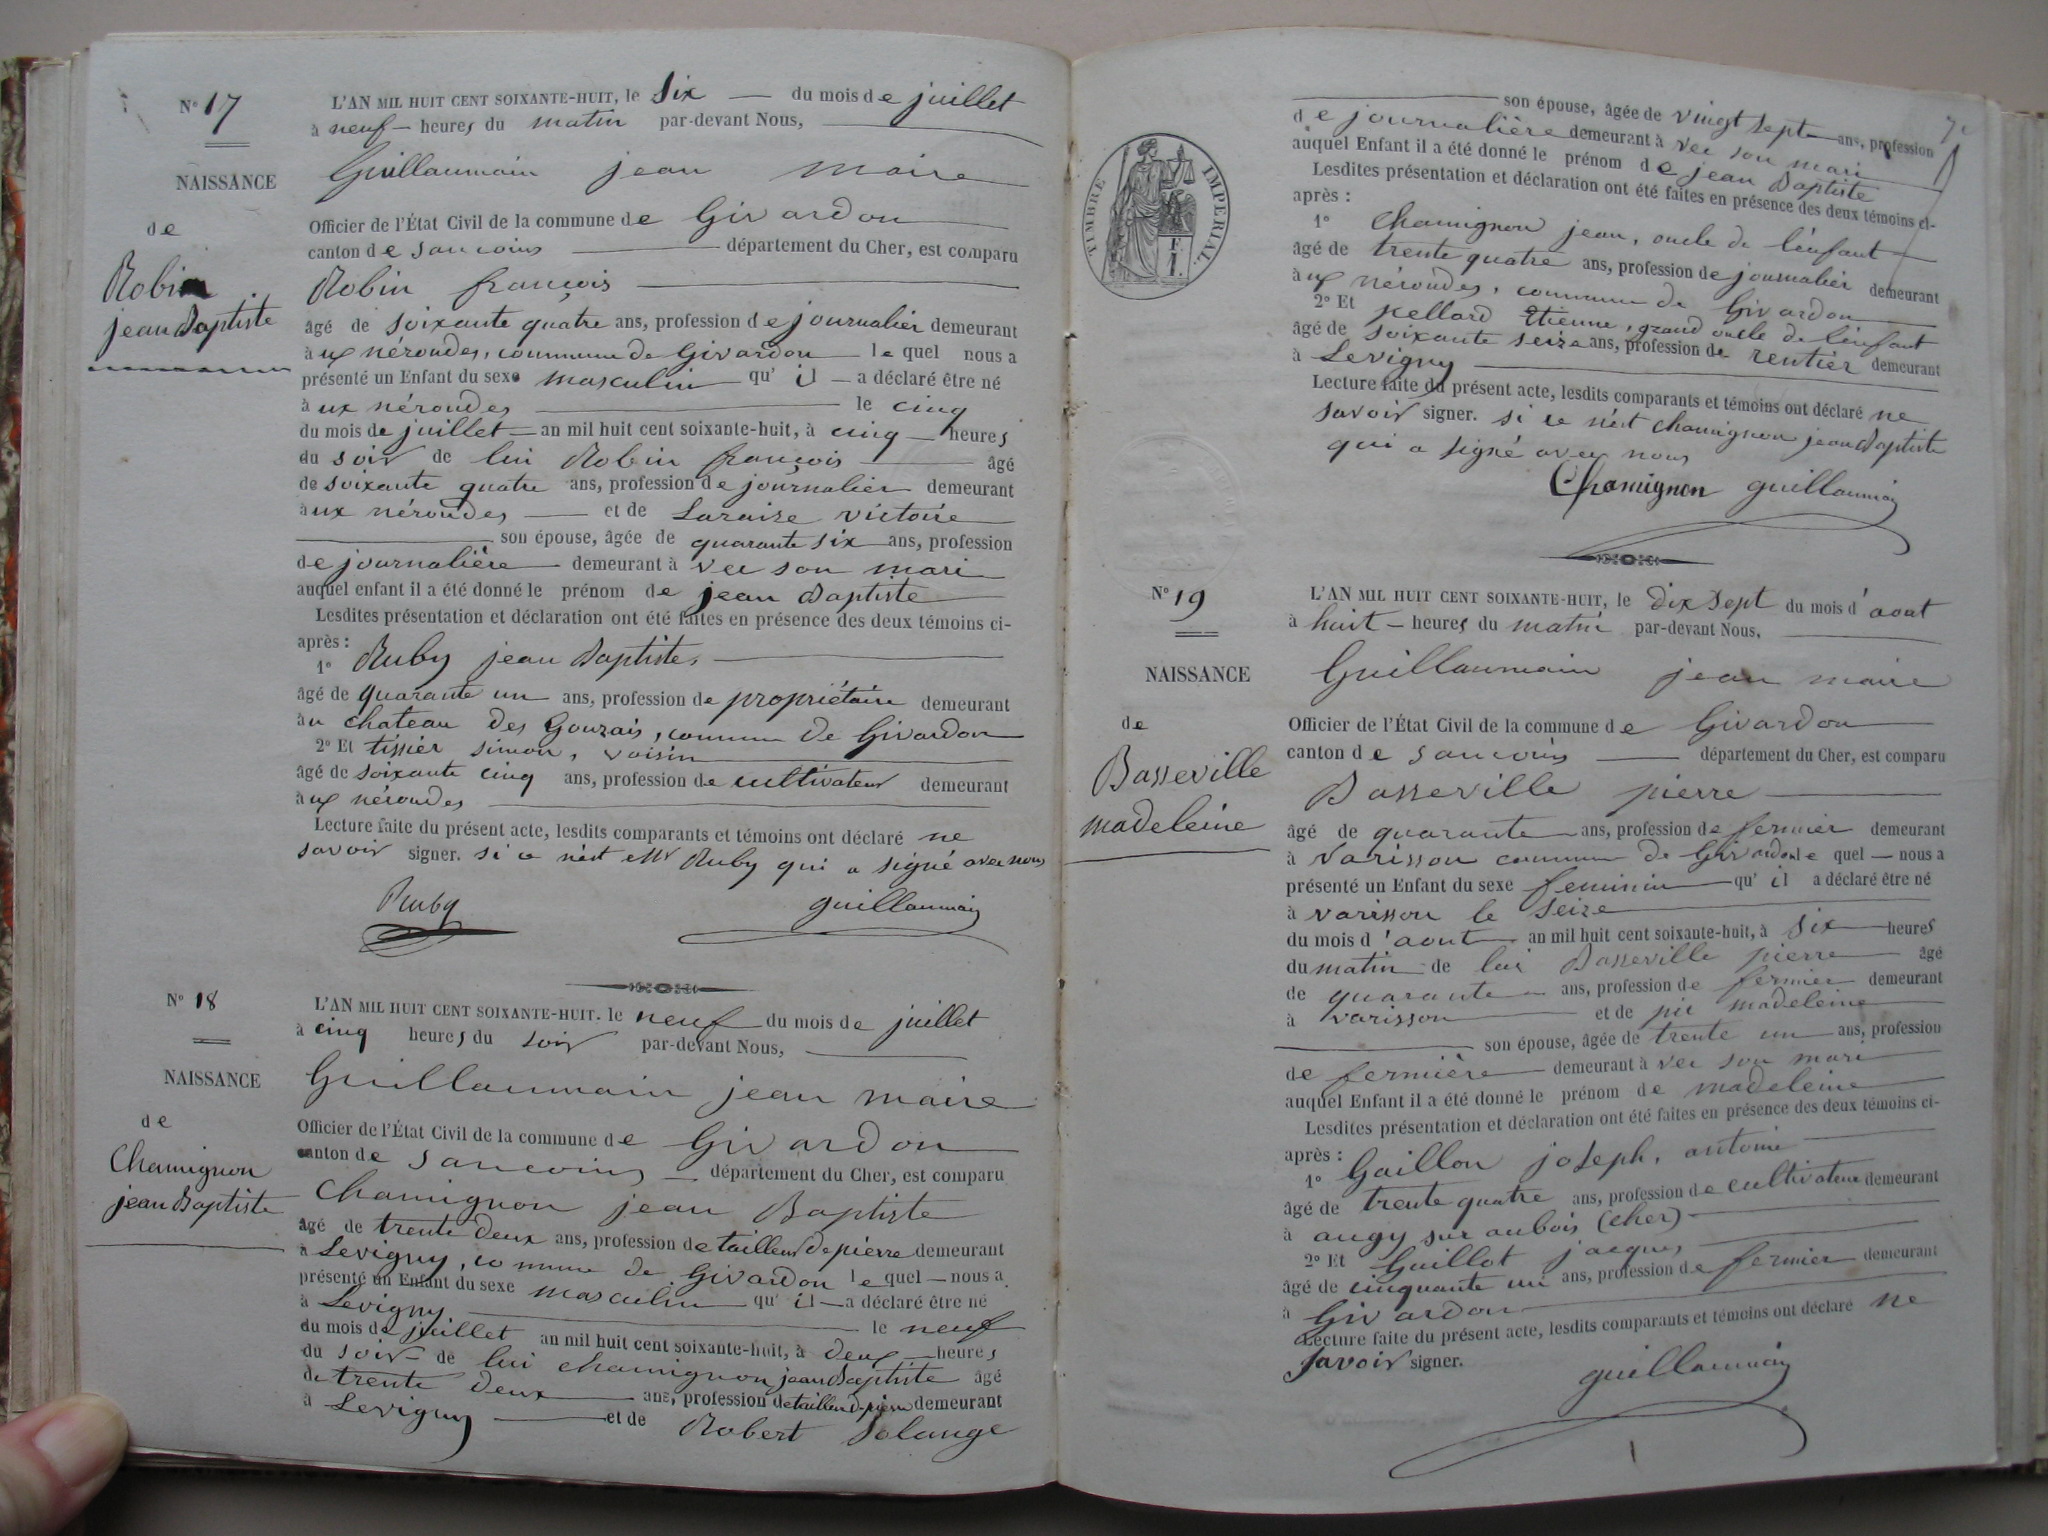 N° 17
NAISSANCE
de
Robin
jean Baptiste
L'AN MIL HUIT CENT SOIXANTE-HUIT, le six du mois de juillet
à neuf heures du matin par-devant Nous,
Guillaumain jean maire
Officier de l'État Civil de la commune de Givardon
canton de sancoins département du Cher, est comparu
Robin françois
âgé de soixante quatre ans, profession de journalier demeurant
à ux néroudes, commune de Givardon le quel nous a
présenté un Enfant du sexe masculin qu' il a déclaré être né
à ux néroudes le cinq
du mois de juillet an mil huit cent soixante-huit, à cinq heures
du soir de lui Robin françois âgé
de soixante quatre ans, profession de journalier demeurant
à ux néroudes et de Laraize victoire
son épouse, âgée de quarante six ans, profession
de journalière demeurant à vec son mari
auquel enfant il a été donné le prénom de jean Baptiste
Lesdites présentation et déclaration ont été faites en présence des deux témoins ci-
après :
1° Ruby jean Baptiste
âgé de quarante un ans, profession de propriétaire demeurant
à u chateau des Gouzais, commune de Givardon
2° Et tissier simon, voisin
âgé de soixante cinq ans, profession de cultivateur demeurant
à ux néroudes
Lecture faite du présent acte, lesdits comparants et témoins ont déclaré ne
savoir signer. si ce n'est Mr Ruby qui a signé avec nous
Ruby guillaumain
N° 18
NAISSANCE
de
Chamignon
jean Baptiste
L'AN MIL HUIT CENT SOIXANTE-HUIT, le neuf du mois de juillet
à cinq heures du soir par-devant Nous,
Guillaumain jean maire
Officier de l'État Civil de la commune de Givardon
canton de sancoins département du Cher, est comparu
Chamignon jean Baptiste
âgé de trente deux ans, profession de tailleur de pierre demeurant
à Levigny, commune de Givardon le quel nous a
présenté un Enfant du sexe masculin qu' il a déclaré être né
à Levigny le neuf
du mois de juillet an mil huit cent soixante-huit, à deux heures
du soir de lui chamignon jean Baptiste âgé
de trente deux ans, profession de tailleur de pierre demeurant
à Levigny et de Robert Solange
TIMBRE IMPERIAL
son épouse, âgée de vingt sept ans, profession
de journalière demeurant à vec son mari
auquel Enfant il a été donné le prénom de jean Baptiste
Lesdites présentation et déclaration ont été faites en présence des deux témoins ci-
après :
1° Chamignon jean, oncle de l'enfant
âgé de trente quatre ans, profession de journalier demeurant
à ux néroudes, commune de Givardon
2° Et pellard Etienne, grand oncle de l'enfant
âgé de soixante seize ans, profession de rentier demeurant
à Levigny
Lecture faite du présent acte, lesdits comparants et témoins ont déclaré ne
savoir signer. si ce n'est chamignon jean Baptiste
qui a signé avec nous
Chamignon guillaumain
N° 19
NAISSANCE
de
Basseville
madeleine
L'AN MIL HUIT CENT SOIXANTE-HUIT, le dix sept du mois d'aout
à huit heures du matin par-devant Nous,
Guillaumain jean maire
Officier de l'État Civil de la commune de Givardon
canton de sancoins département du Cher, est comparu
Basseville pierre
âgé de quarante ans, profession de fermier demeurant
à varisson commune de Givardon le quel nous a
présenté un Enfant du sexe feminin qu' il a déclaré être né
à varisson le seize
du mois d'aout an mil huit cent soixante-huit, à six heures
du matin de lui Basseville pierre âgé
de quarante ans, profession de fermier demeurant
à varisson et de pic madeleine
son épouse, âgée de trente un ans, profession
de fermière demeurant à vec son mari
auquel Enfant il a été donné le prénom de madeleine
Lesdites présentation et déclaration ont été faites en présence des deux témoins ci-
après :
1° Gaillon joseph, antoine
âgé de trente quatre ans, profession de cultivateur demeurant
à augy sur aubois (cher)
2° Et Guillot jacques
âgé de cinquante un ans, profession de fermier demeurant
à Givardon
Lecture faite du présent acte, lesdits comparants et témoins ont déclaré ne
savoir signer.
guillaumain